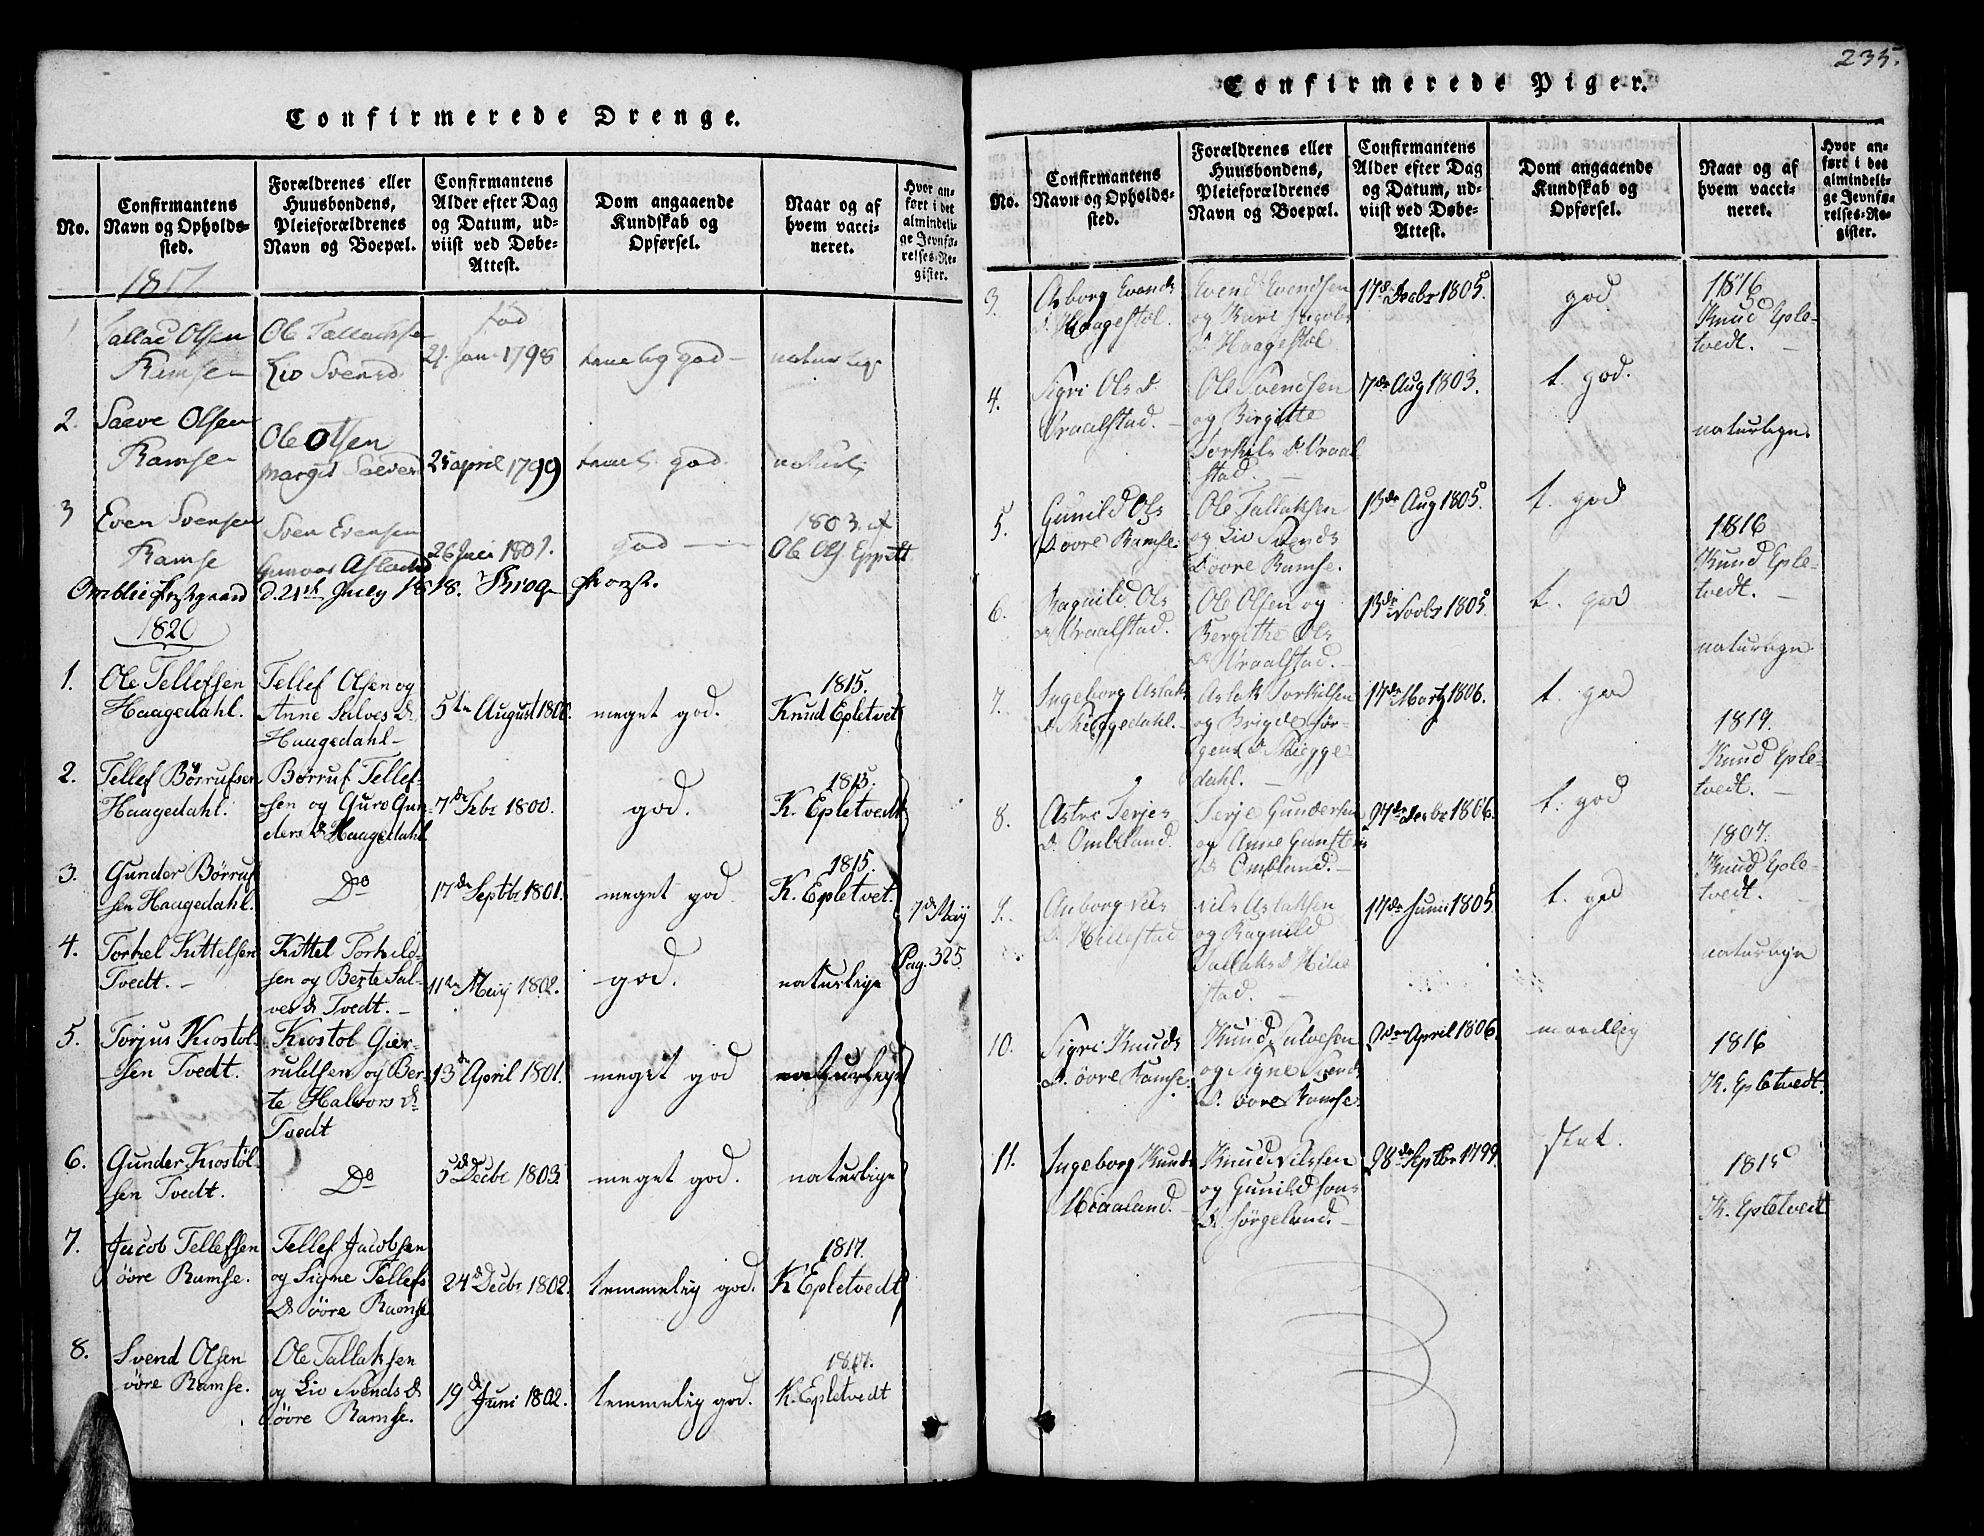 Confirmerede Drenge.
No.
Confirmantens
Navn og Opholds-
sted.
Forældrenes eller
Huusbondens,
Pleieforældrenes
Navn og Boepæl.
Confirmantens
Alder efter Dag
og Datum, ud-
viist ved Døbe-
Attest.
Dom angaaende
Kundskab og
Opførsel.
Naar og af
hvem vacci-
neret.
Hvor an-
ført i det
almindeli-
ge Jevnfø-
relses-Re-
gister.
1817
Tallac Olsen
Ramse
Ole Tallachse
Liv Svensd
fød
21 Jan 1798
god
naturlig
2.
Saeve Olsen
Ramse
Ole Olsen
Margit
25 april 1799
god
naturli
3
Even Svensen
Ramse
Sven Evensen
Gunvor
26 Juni 1801
god
1803 af
Ole Ols
Omblie Præstgaard d. 21de July 1818. Krog
1820
1.
Ole Tellefsen
Haagedahl.
Tellef Olsen og
Anne Salves D.
Haagedahl
5te August 1800.
meget god.
1815.
Knud Epletvet
2.
Tellef Børrufsen
Haagedahl.
Børruf Tellef-
sen og Guro Gun-
ders D. Haagedahl
7de Febr 1800.
god.
1815.
K. Epletvedt
3.
Gunder Børruf
sen Haagedahl.
Do
17de Septbr 1801.
meget god
1815.
K. Epletvet.
7de May
Pag. 325.
4.
Torkel Kittelsen
Tvedt.
Kittel Torkils-
sen og Berte Sal-
ves D. Tvedt.
11te May 1802.
god.
naturlige
5.
Torjus Krostol-
sen Tvedt.
Krostol Gier-
ruldsen og Ber-
te Halvors D.
Tvedt
13de April 1801.
meget god
naturlige
6.
Gunder Krostøl-
sen Tvedt.
Do
5de Decbr 1803.
meget god.
naturlige
7.
Jacob Tellefsen
øvre Ramse.
Tellef Jacobsen
og Signe Tellefs
D. øvre Ramse
24de Decbr 1802.
temmelig god.
1817.
K Epletvedt
8.
Svend Olsen
øvre Ramse.
Ole Tallaksen
og Liv Svends D.
øvre Ramse.
19de Juni 1802.
temmelig god.
1817.
K. Epletvedt
235.
Confirmerede Piger.
No.
Confirmantens
Navn og Opholds-
sted.
Forældrenes eller
Huusbondens,
Pleieforældrenes
Navn og Boepæl.
Confirmantens
Alder efter Dag
og Datum, ud-
viist ved Døbe-
Attest.
Dom angaaende
Kundskab og
Opførsel.
Naar og af
hvem vacci-
neret.
Hvor an-
ført i det
almindeli-
ge Jevnfø-
relses-Re-
gister.
3.
Asborg Evends
D. Haagestøl.
Evend Evendsen
og Kari Jacobs
D. Haagestøl
17de Decbr 1805.
god
1816
Knud Eple-
tvedt.
4.
Sigri Ols D
Vraalstad.
Ole Svendsen
og Birgitte
Torkils D. Vraal
stad.
7de Aug 1803.
t. god.
naturlign.
5.
Gunild Ols
D. øvre Ramse.
Ole Tallaksen
og Liv Svends
D. øvre Ramse.
13de Aug 1805
t. god
1816
Knud Eple-
tvedt.
6.
Ragnild Ols
D. Vraalstad.
Ole Olsen og
Bergithe Ols
D. Vraalstad.
13de Novbr 1805
t. god
naturlign.
7.
Ingeborg Aslaks
D. Skiggedahl.
Aslak Torkilsen
og Brigde Jør-
gens D. Skigge
dahl.
17de Martz 1806.
t. god
1819.
Knud Eple-
tvedt.
8.
Astri Terjes
D. Ombeland.
Terje Gundersen
og Anne Gunsteins
D. Ombland.
27de Decbr 1806.
t. god
1807.
Knud Eple-
tvedt.
9.
Anborg Nils
D. Hillestad
Nils Aslaksen
og Ragnild
Tallaks D. Hille
stad.
17de Juni 1805
t. god
naturlign
10.
Sigri Knuds
D. øvre Ramse.
Knud Salvesen
og Signe Svends
D. øvre Ramse.
2den April 1806.
maadelig
1816
K. Epletvedt
11.
Ingeborg Knuds
Knud Nilssen
og Gunild Jons
D. Jørgeland.
28de Septbr 1799.
slet.
1815
K. Epletvedt